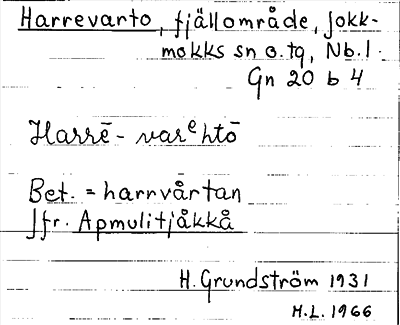 Harrevarto, fjällområde, Jokk-
mokks sn o. tg, Nb. l.
Gn 20 b 4
Harrē - varᵉhtō
Bet. = harrvårtan
Jfr. Apmulitjåkkå
H. Grundström 1931
H.L. 1966